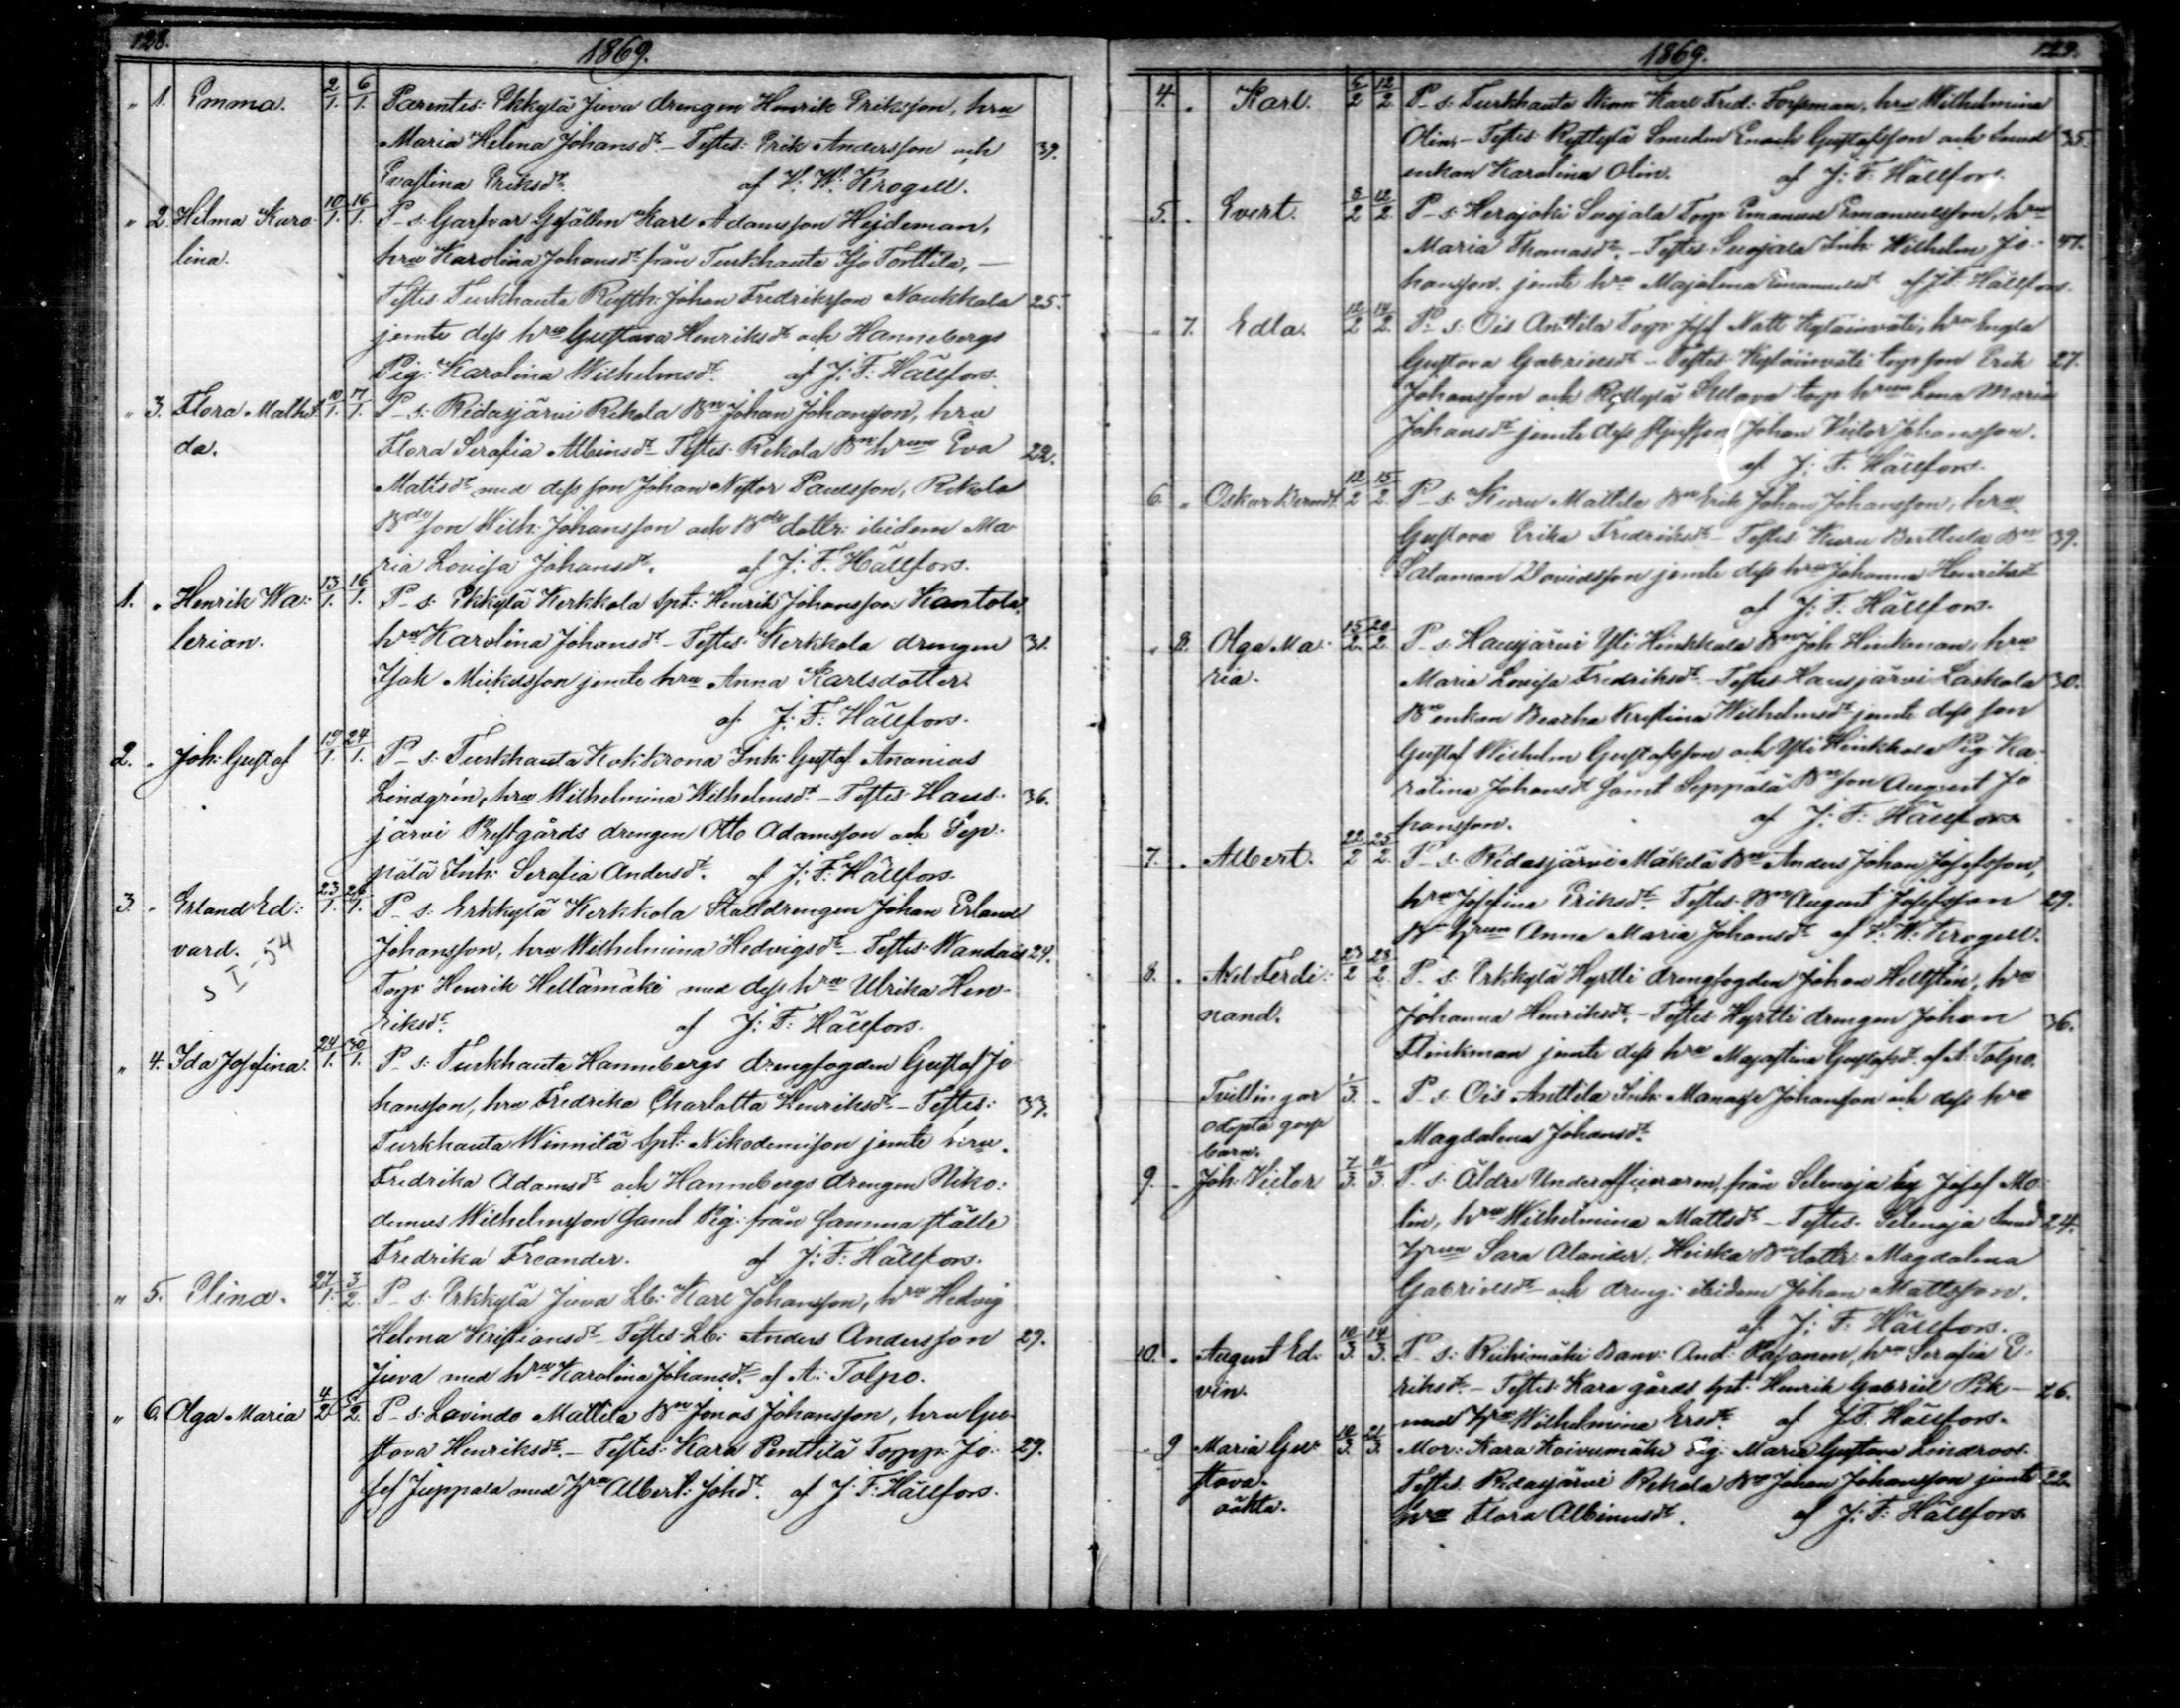 128.
1869.
" 1. Emma. 2/1. 6/1. Parentes: Erkkylä Juva drengen Henrik Eriksson, hru
Maria Helena Johansdr. – Testes: Erik Andersson och 39.
Evastina Eriksdr. af V: W: Krogell.
" 2. Helma Karo- 10/1. 16/1. P–s: Garfvar Gesällen Karl Adamsson Hejdeman,
lina. hru Karolina Johansdr från Turkhauta Iso Torttila, –
Testes Turkhauta Rusth: Johan Fredriksson Noukkala 25.
jemte dess hru Gustava Henriksdr och Hannebergs
Pig: Karolina Wilhelmsdr. af J: F: Hällfors.
" 3. Flora Mathil- 10/1. 17/1. P–s: Ridasjärvi Rekola Bn Johan Johansson, hru
da. Flora Serafia Albinsdr Testes: Rekola Bn hrun Eva 22.
Mattsdr med dess son Johan Nestor Paulsson, Rekola
Bde son Wilh: Johansson och Bde dottr: ibidem Ma-
ria Lovisa Johansdr. af J: F: Hällfors.
1. " Henrik Wa- 13/1. 16/1. P–s: Erkkylä Kerkkola Spt: Henrik Johansson Kantola,
lerian. hru Karolina Johansdr – Testes: Kerkkola drengen 31.
Isak Mickelsson jemte hru Anna Karlsdotter.
af J: F: Hällfors.
2. " Joh: Gustaf 19/1. 24/1. P–s: Turkhauta Kokkrona Inh: Gustaf Ananias
Lindgrén, hru Wilhelmina Wilhelmsdr – Testes: Haus- 36.
järvi Prestgårds drengen Otto Adamsson och Sep-
pälä Inh: Serafia Andersdr. af J: F: Hällfors.
3. " Erland Ed- 23/1. 26/1. P–s: Erkkylä Kerkkola Stalldrengen Johan Erland
vard. Johansson, hru Wilhelmina Hedvigsdr – Testes: Wandais 24.
Torp: Henrik Hellämäki med dess hru Ulrika Hen-
riksdr. af J: F: Hällfors.
" 4. Ida Josefina. 24/1. 30/1. P–s: Turkhauta Hannebergs drengfogden Gustaf Jo-
hansson, hru Fredrika Charlotta Henriksdr. – Testes: 33.
Turkhauta Winnilä Spt: Nikodemisson jemte hru
Fredrika Adamsdr och Hannebergs drengen Niko-
demus Wilhelmsson samt Pig: från samma ställe
Fredrika Freander. af J: F: Hällfors.
" 5. Elina. 27/1. 3/2. P–s: Erkkylä Juva Lb: Karl Johansson, hru Hedvig
Helena Kristiansdr Testes: Lb: Anders Andersson 29.
Juva med hru Karolina Johansdr. af A: Tolpo.
" 6. Olga Maria 4/2. 5/2. P–s: Lavindo Mattila Bn Jonas Johansson, hru Gu-
stava Henriksdr. – Testes: Kara Penttilä Torpp: Jo- 29.
sef Juppala med hru Albert: Johdr. af J: F: Hällfors.
1869.
129.
4. " Karl. 6/2 12/2. P–s: Turkhauta Karl Fred: Forsman, hru Wilhelmina
Olin. – Testes Ryttylä Smeden Enoch Gustafsson och Smed 35.
enkan Karolina Olin. af J: F: Hällfors.
5. " Evert. 8/2 12/2. P–s: Herajoki Suojala Torp: Emanuel Emanuelsson, hru
Maria Thomasdr. – Testes Suojala Inh: Wilhelm Jo- 47.
hansson jemte hru Majalena Emanuelsdr af J: F: Hällfors.
" 7. Edla. 12/2 14/2. P–s: Ois Anttila Torp: Josef Matt Kyläinväti, hru Engla
Gustava Gabrielsdr – Testes: Kyläinväti torp son Erik 27.
Johansson och Ryttylä torp hrun Lena Maria
Johansdr jemte dess Johan Victor Johansson.
af J: F: Hällfors.
6. " Oskar Berndt. 12/2 15/2. P–s: Kuru Mattila Bn Erik Johan Johansson, hru
Gustava Erika Fredriksdr – Testes Kuru Berttula Bn 39.
Salamon Davidsson jemte dess hru Johanna Henriksdr
af J: F: Hällfors.
" 8. Olga Ma- 15/2. 20/2. P–s: Hausjärvi Yli Hinkkala Bn Joh: Hinkman, hru
ria. Maria Lovisa Fredriksdr – Testes Hausjärvi Laskola 30.
Bn enkan Beatha Kristina Wilhelmsdr jemte dess son
Gustaf Wilhelm Gustafsson och Yli Hinkkala Pig: Ka-
rolina Johansdr samt Seppälä Bn son August Jo-
hansson. af J: F: Hällfors.
7. " Albert. 22/2 25/2. P–s: Ridasjärvi Mäkelä Bn Anders Johan Josefsson,
hru Josefina Eriksdr. Testes: Bn August Josefsson 29.
Bn hrun Anna Maria Johansdr af V: W: Krogell.
8. " Axel Ferdi- 23/2 28/2. P–s: Erkkylä Hyrtti drengfogden Johan Hellstén, hru
nand. Johanna Henriksdr. – Testes Hyrtti drengen Johan 36.
Flinkman jemte dess hru Majastina Gustafsdr. af A: Tolpo.
Tvillingar 1/3. – P–s: Ois Anttila Inh: Manasse Johansson och dess hru
odöpta goss Magdalena Johansdr.
barn.
9. " Joh: Victor 7/3. 11/3. P–s: Äldre Underofficeraren från Selenoja by Josef Mo-
lin, hru Wilhelmina Mattsdr – Testes: Selenoja Smed 24.
hrun Sara Alander, Heiska Bn dottr: Magdalena
Gabrielsdr och dreng: ibidem Johan Mattsson.
af J: F: Hällfors.
10. " August Ed- 10/3. 14/3. P–s: Riihimäki Banv: And: Hasanen, hru Serafia E-
vin. riksdr. – Testes: Kara gårds Spt: Henrik Gabriel Pik – 26.
med hru Wilhelmina Ersdr. af J: F: Hällfors.
" 9 Maria Gu- 10/3. 21/3. Mor: Kara Koivumäki Pig: Maria Gustava Lindroos.
stava. Testes: Ridasjärvi Rekola Bn Johan Johansson jemte 22.
oäkta. hru Flora Albinusdr. af J: F: Hällfors.